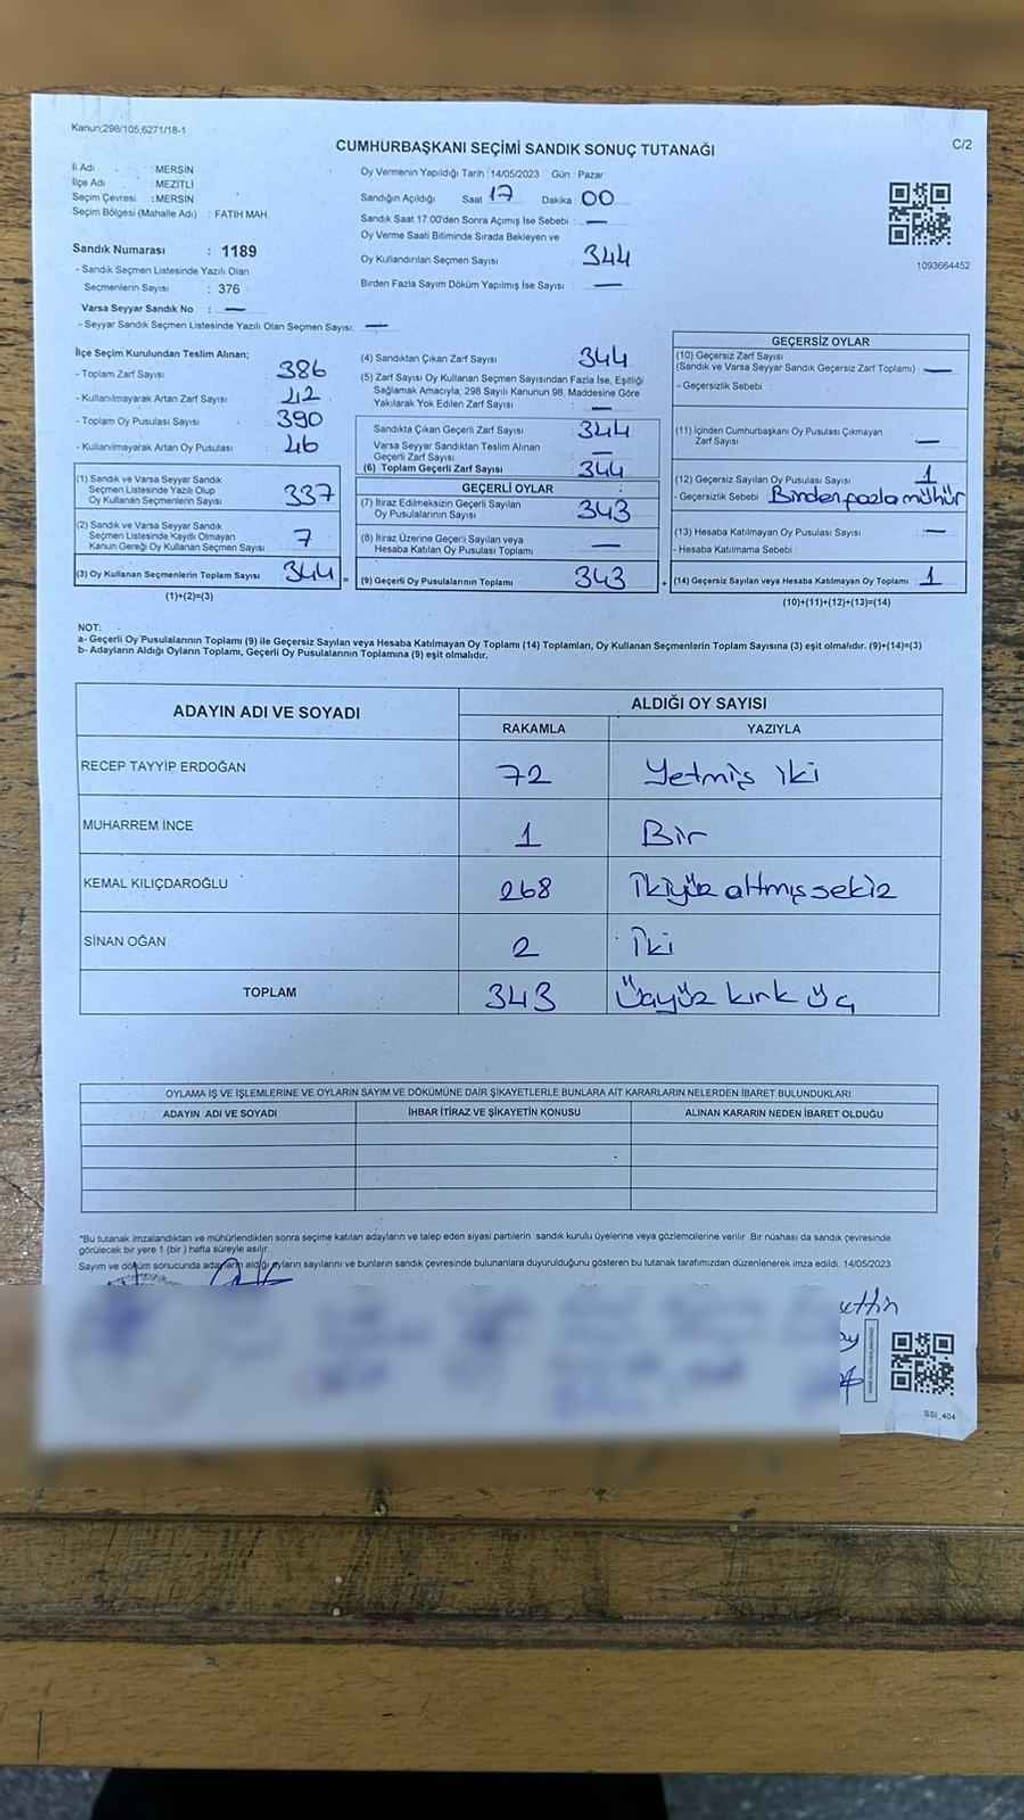 Kanun;298/105,6271/18-1
CUMHURBAŞKANI SEÇİMİ SANDIK SONUÇ TUTANAĞI
C/2
İl Adı : MERSİN
İlçe Adı : MEZİTLİ
Seçim Çevresi : MERSİN
Seçim Bölgesi (Mahalle Adı) : FATİH MAH.
Sandık Numarası : 1189
- Sandık Seçmen Listesinde Yazılı Olan
Seçmenlerin Sayısı : 376
Varsa Seyyar Sandık No : —
- Seyyar Sandık Seçmen Listesinde Yazılı Olan Seçmen Sayısı: —
Oy Vermenin Yapıldığı Tarih : 14/05/2023 Gün : Pazar
Sandığın Açıldığı Saat 17 Dakika 00
Sandık Saat 17:00'den Sonra Açımış İse Sebebi : —
Oy Verme Saati Bitiminde Sırada Bekleyen ve
Oy Kullandırılan Seçmen Sayısı 344
Birden Fazla Sayım Döküm Yapılmış İse Sayısı —
1093664452
İlçe Seçim Kurulundan Teslim Alınan;
- Toplam Zarf Sayısı : 386
- Kullanılmayarak Artan Zarf Sayısı : 42
- Toplam Oy Pusulası Sayısı : 390
- Kullanılmayarak Artan Oy Pusulası : 46
(1) Sandık ve Varsa Seyyar Sandık
Seçmen Listesinde Yazılı Olup
Oy Kullanan Seçmenlerin Sayısı 337
(2) Sandık ve Varsa Seyyar Sandık
Seçmen Listesinde Kaydı Olmayan
Kanun Gereği Oy Kullanan Seçmen Sayısı 7
(3) Oy Kullanan Seçmenlerin Toplam Sayısı 344 =
(1)+(2)=(3)
(4) Sandıktan Çıkan Zarf Sayısı 344
(5) Zarf Sayısı Oy Kullanan Seçmen Sayısından Fazla İse, Eşitliği
Sağlamak Amacıyla, 298 Sayılı Kanunun 98. Maddesine Göre
Yakılarak Yok Edilen Zarf Sayısı —
Sandıkta Çıkan Geçerli Zarf Sayısı 344
Varsa Seyyar Sandıktan Teslim Alınan
Geçerli Zarf Sayısı —
(6) Toplam Geçerli Zarf Sayısı 344
GEÇERLİ OYLAR
(7) İtiraz Edilmeksizin Geçerli Sayılan
Oy Pusulalarının Sayısı 343
(8) İtiraz Üzerine Geçerli Sayılan veya
Hesaba Katılan Oy Pusulası Toplamı —
(9) Geçerli Oy Pusulalarının Toplamı 343 +
GEÇERSİZ OYLAR
(10) Geçersiz Zarf Sayısı
(Sandık ve Varsa Seyyar Sandık Geçersiz Zarf Toplamı) —
- Geçersizlik Sebebi :
(11) İçinden Cumhurbaşkanı Oy Pusulası Çıkmayan
Zarf Sayısı —
(12) Geçersiz Sayılan Oy Pusulası Sayısı 1
- Geçersizlik Sebebi Birden fazla mühür
(13) Hesaba Katılmayan Oy Pusulası Sayısı —
- Hesaba Katılmama Sebebi :
(14) Geçersiz Sayılan veya Hesaba Katılmayan Oy Toplamı 1
(10)+(11)+(12)+(13)=(14)
NOT:
a- Geçerli Oy Pusulalarının Toplamı (9) ile Geçersiz Sayılan veya Hesaba Katılmayan Oy Toplamı (14) Toplamları, Oy Kullanan Seçmenlerin Toplam Sayısına (3) eşit olmalıdır. (9)+(14)=(3)
b- Adayların Aldığı Oyların Toplamı, Geçerli Oy Pusulalarının Toplamına (9) eşit olmalıdır.
ADAYIN ADI VE SOYADI
ALDIĞI OY SAYISI
RAKAMLA YAZIYLA
RECEP TAYYİP ERDOĞAN 72 Yetmiş iki
MUHARREM İNCE 1 Bir
KEMAL KILIÇDAROĞLU 268 İkiyüz altmış sekiz
SİNAN OĞAN 2 İki
TOPLAM 343 Üçyüz kırk üç
OYLAMA İŞ VE İŞLEMLERİNE VE OYLARIN SAYIM VE DÖKÜMÜNE DAİR ŞİKAYETLERLE BUNLARA AİT KARARLARIN NELERDEN İBARET BULUNDUKLARI
ADAYIN ADI VE SOYADI İHBAR İTİRAZ VE ŞİKAYETİN KONUSU ALINAN KARARIN NEDEN İBARET OLDUĞU
*Bu tutanak imzalandıktan ve mühürlendikten sonra seçime katılan adayların ve talep eden siyasi partilerin sandık kurulu üyelerine veya gözlemcilerine verilir. Bir nüshası da sandık çevresinde
görülecek bir yere 1 (bir) hafta süreyle asılır.
Sayım ve döküm sonucunda adayların aldığı oyların sayılarını ve bunların sandık çevresinde bulunanlara duyurulduğunu gösteren bu tutanak tarafımızdan düzenlenerek imza edildi. 14/05/2023
ettin